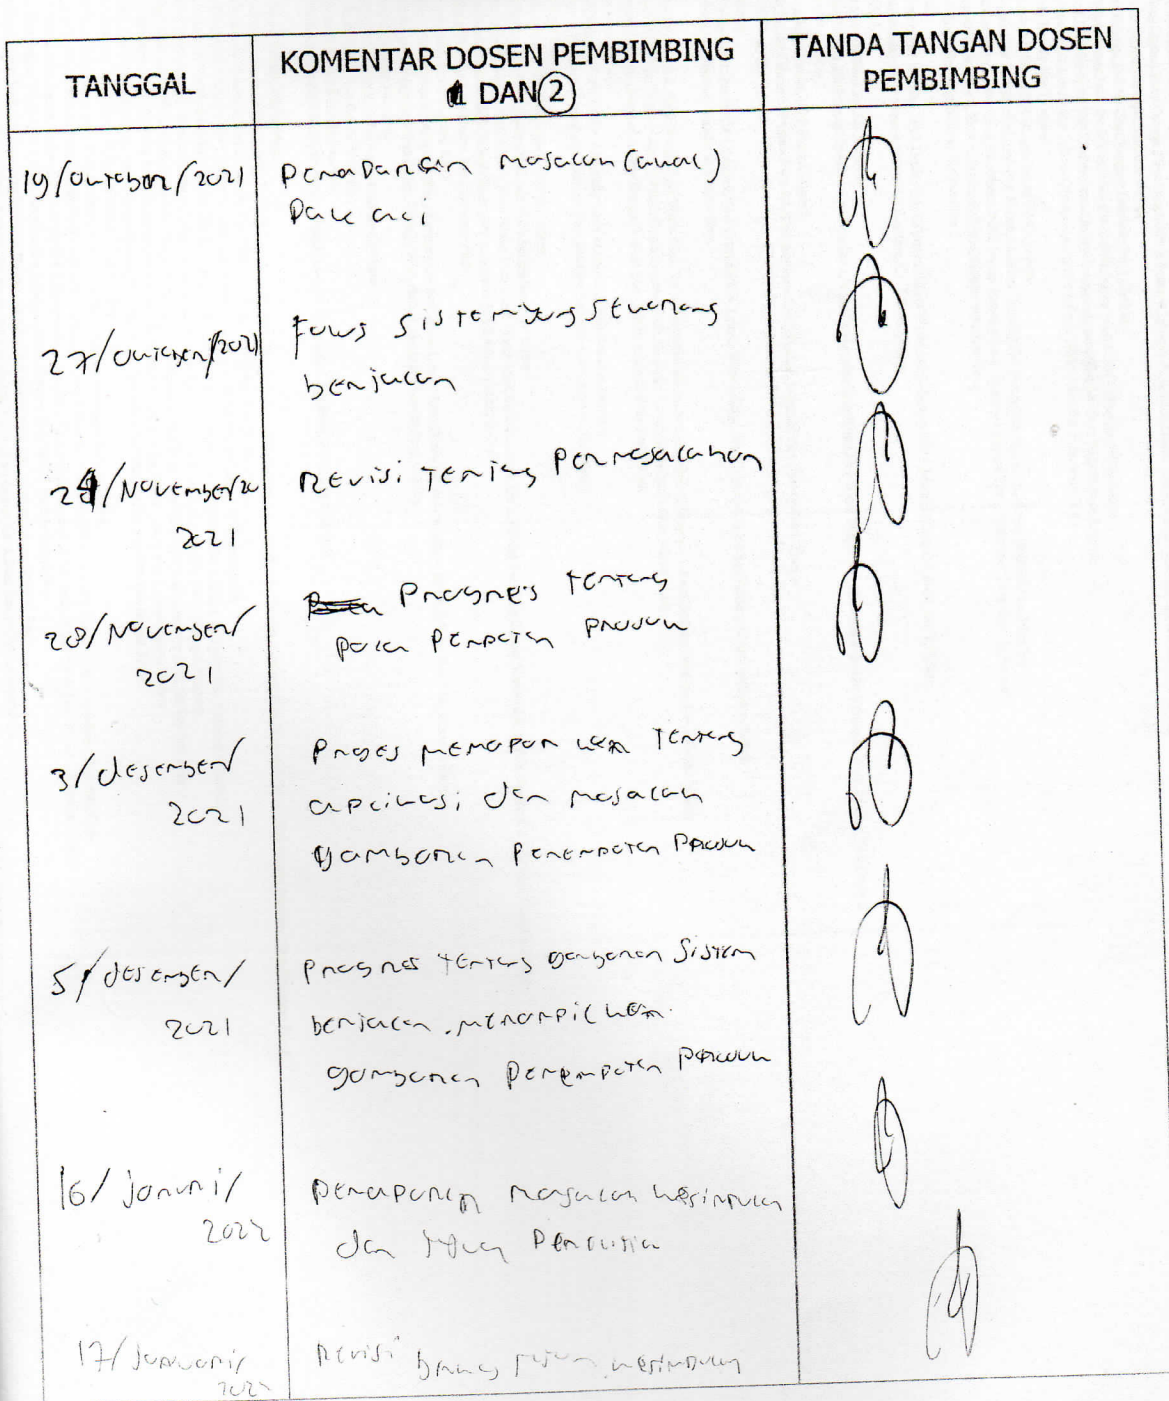 TANGGAL
KOMENTAR DOSEN PEMBIMBING
1 DAN 2
TANDA TANGAN DOSEN
PEMBIMBING
19/oktober/2021
Pemaparan masalah (awal)
27/oktober/2021
Fokus sistem yang sekarang
berjalan
November/20
2021
Revisi tentang permasalahan
28/November/
2021
Progres tentang
produk
3/desember/
2021
Proses memaparkan tentang
aplikasi dan masalah
gambaran penempatan produk
5/desember/
2021
Progres tentang gambaran sistem
berjalan, menampilkan
gambaran penempatan produk
16/januari/
2022
Pemaparan masalah kesimpulan
dan
17/januari/
2022
Revisi kesimpulan